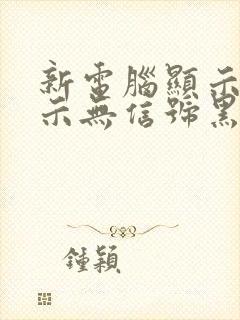 新電腦顯示
示無信號黑
鍾穎